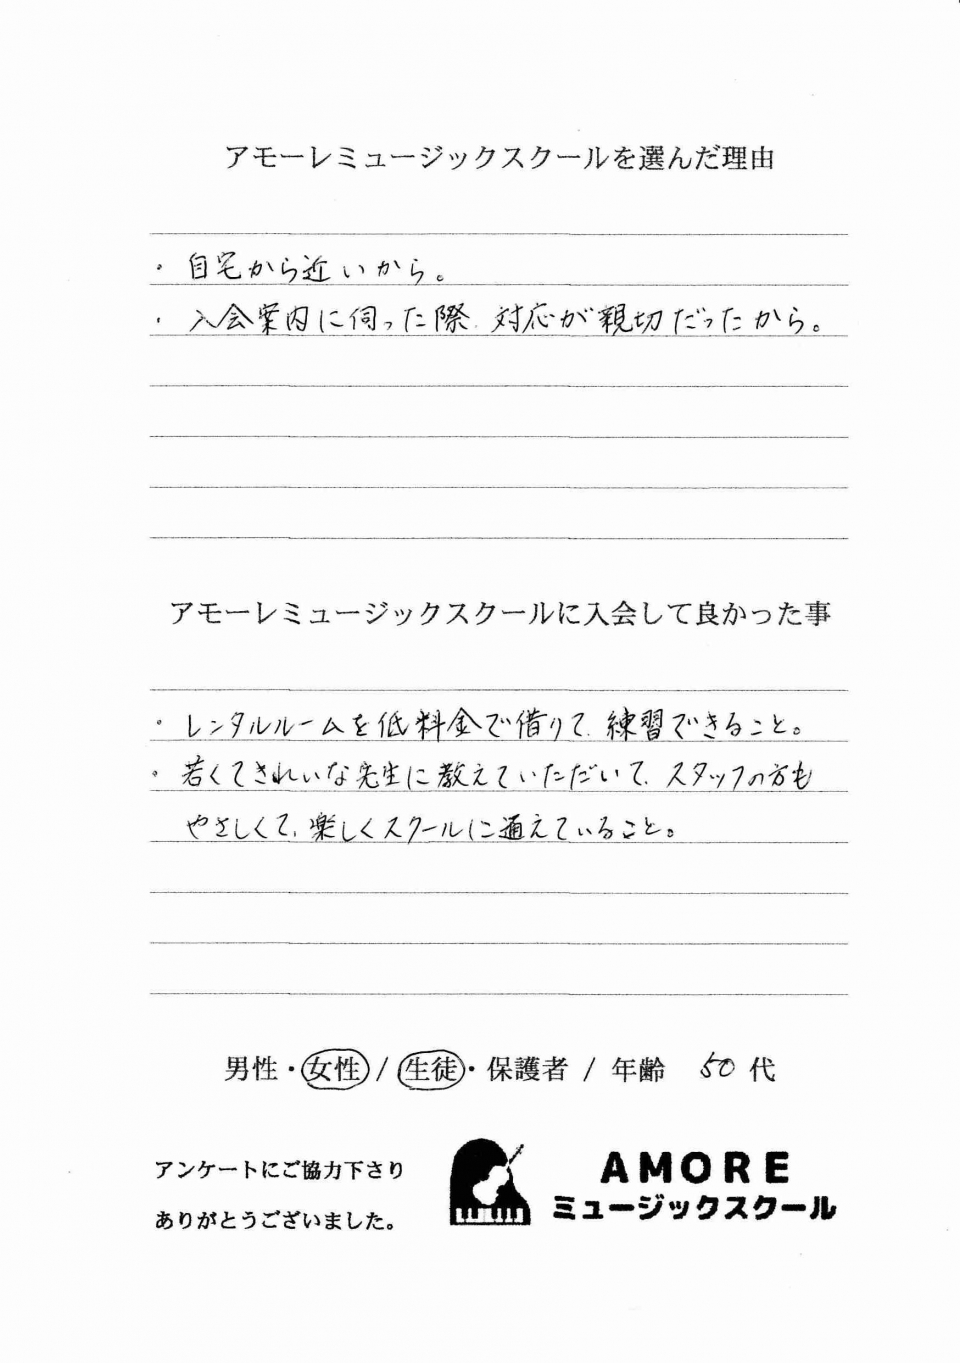 アモーレミュージックスクールを選んだ理由
・自宅から近いから。
・入会案内に伺った際、対応が親切だったから。
アモーレミュージックスクールに入会して良かった事
・レンタルルームを低料金で借りて、練習できること。
・若くてきれいな先生に教えていただいて、スタッフの方も
やさしくて、楽しくスクールに通えていること。
男性・女性 / 生徒・保護者 / 年齢 50 代
アンケートにご協力下さり
ありがとうございました。
AMORE
ミュージックスクール